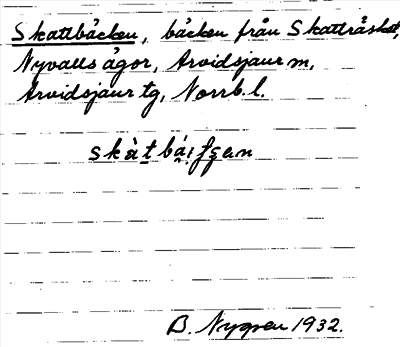 Skattbäcken, bäcken från Skattråsket,
Nyvalls ägor, Arvidsjaur m,
Arvidsjaur tg, Norrb. l.
B. Nygren 1932.